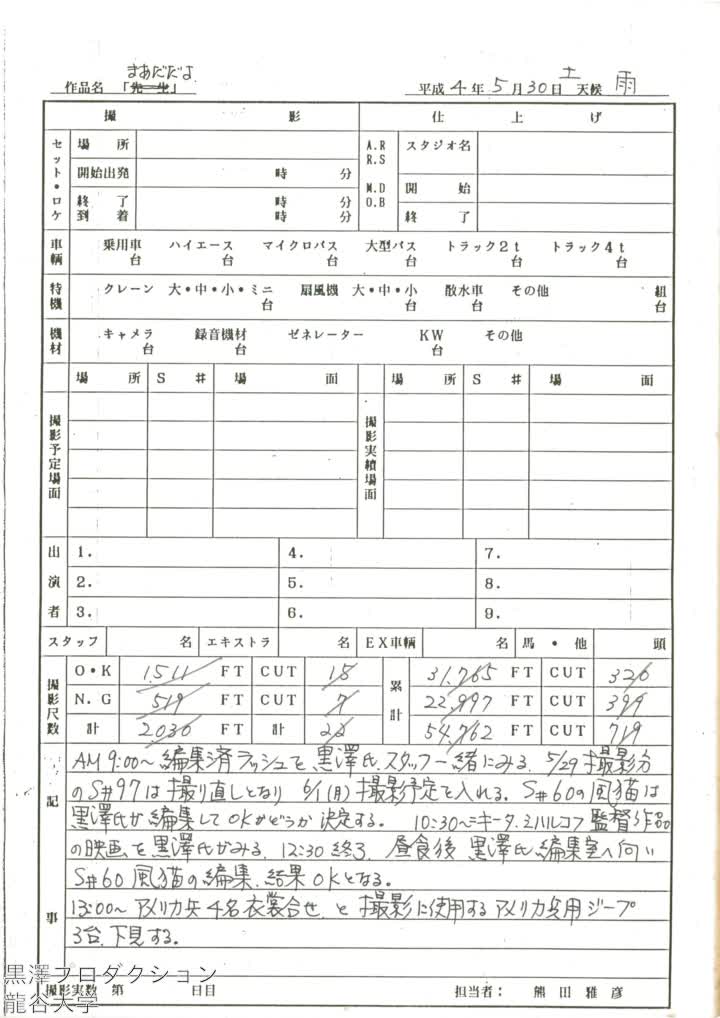 まあだだよ
作品名 「先生」 平成4年5月30日 土 天候 雨
撮 影 仕 上 げ
セット・ロケ 場 所 A.R R.S M.D O.B スタジオ名
開始出発 時 分 開 始
終 了 時 分 終 了
到 着 時 分
車輌 乗用車 台 ハイエース 台 マイクロバス 台 大型バス 台 トラック2t 台 トラック4t 台
特機 クレーン 大・中・小・ミニ 台 扇風機 大・中・小 台 散水車 台 その他 組 台
機材 キャメラ 台 録音機材 台 ゼネレーター KW 台 その他
場 所 S # 場 面 場 所 S # 場 面
撮影予定場面 撮影実績場面
出演者 1. 4. 7.
2. 5. 8.
3. 6. 9.
スタッフ 名 エキストラ 名 EX車輌 名 馬・他 頭
撮影尺数 O・K 1511 FT CUT 15 累計 31,765 FT CUT 320
N.G 519 FT CUT 7 22,997 FT CUT 399
計 2030 FT 計 22 54,762 FT CUT 719
記事
AM9:00〜編集済ラッシュを黒澤氏、スタッフ一緒にみる。5/29撮影分
のS#97は撮り直しとなり 6/1(月)撮影予定を入れる。S#60の風猫は
黒澤氏が編集してOKかどうか決定する。 10:30〜ニキータ・ミハルコフ監督作品
の映画を黒澤氏がみる。12:30終了。昼食後 黒澤氏、編集室へ向い
S#60風猫の編集、結果OKとなる。
13:00〜アメリカ兵4名衣裳合せ、と撮影に使用するアメリカ兵用ジープ
3台、下見する。
撮影実数 第 日目 担当者: 熊田雅彦
黒澤プロダクション
龍谷大学